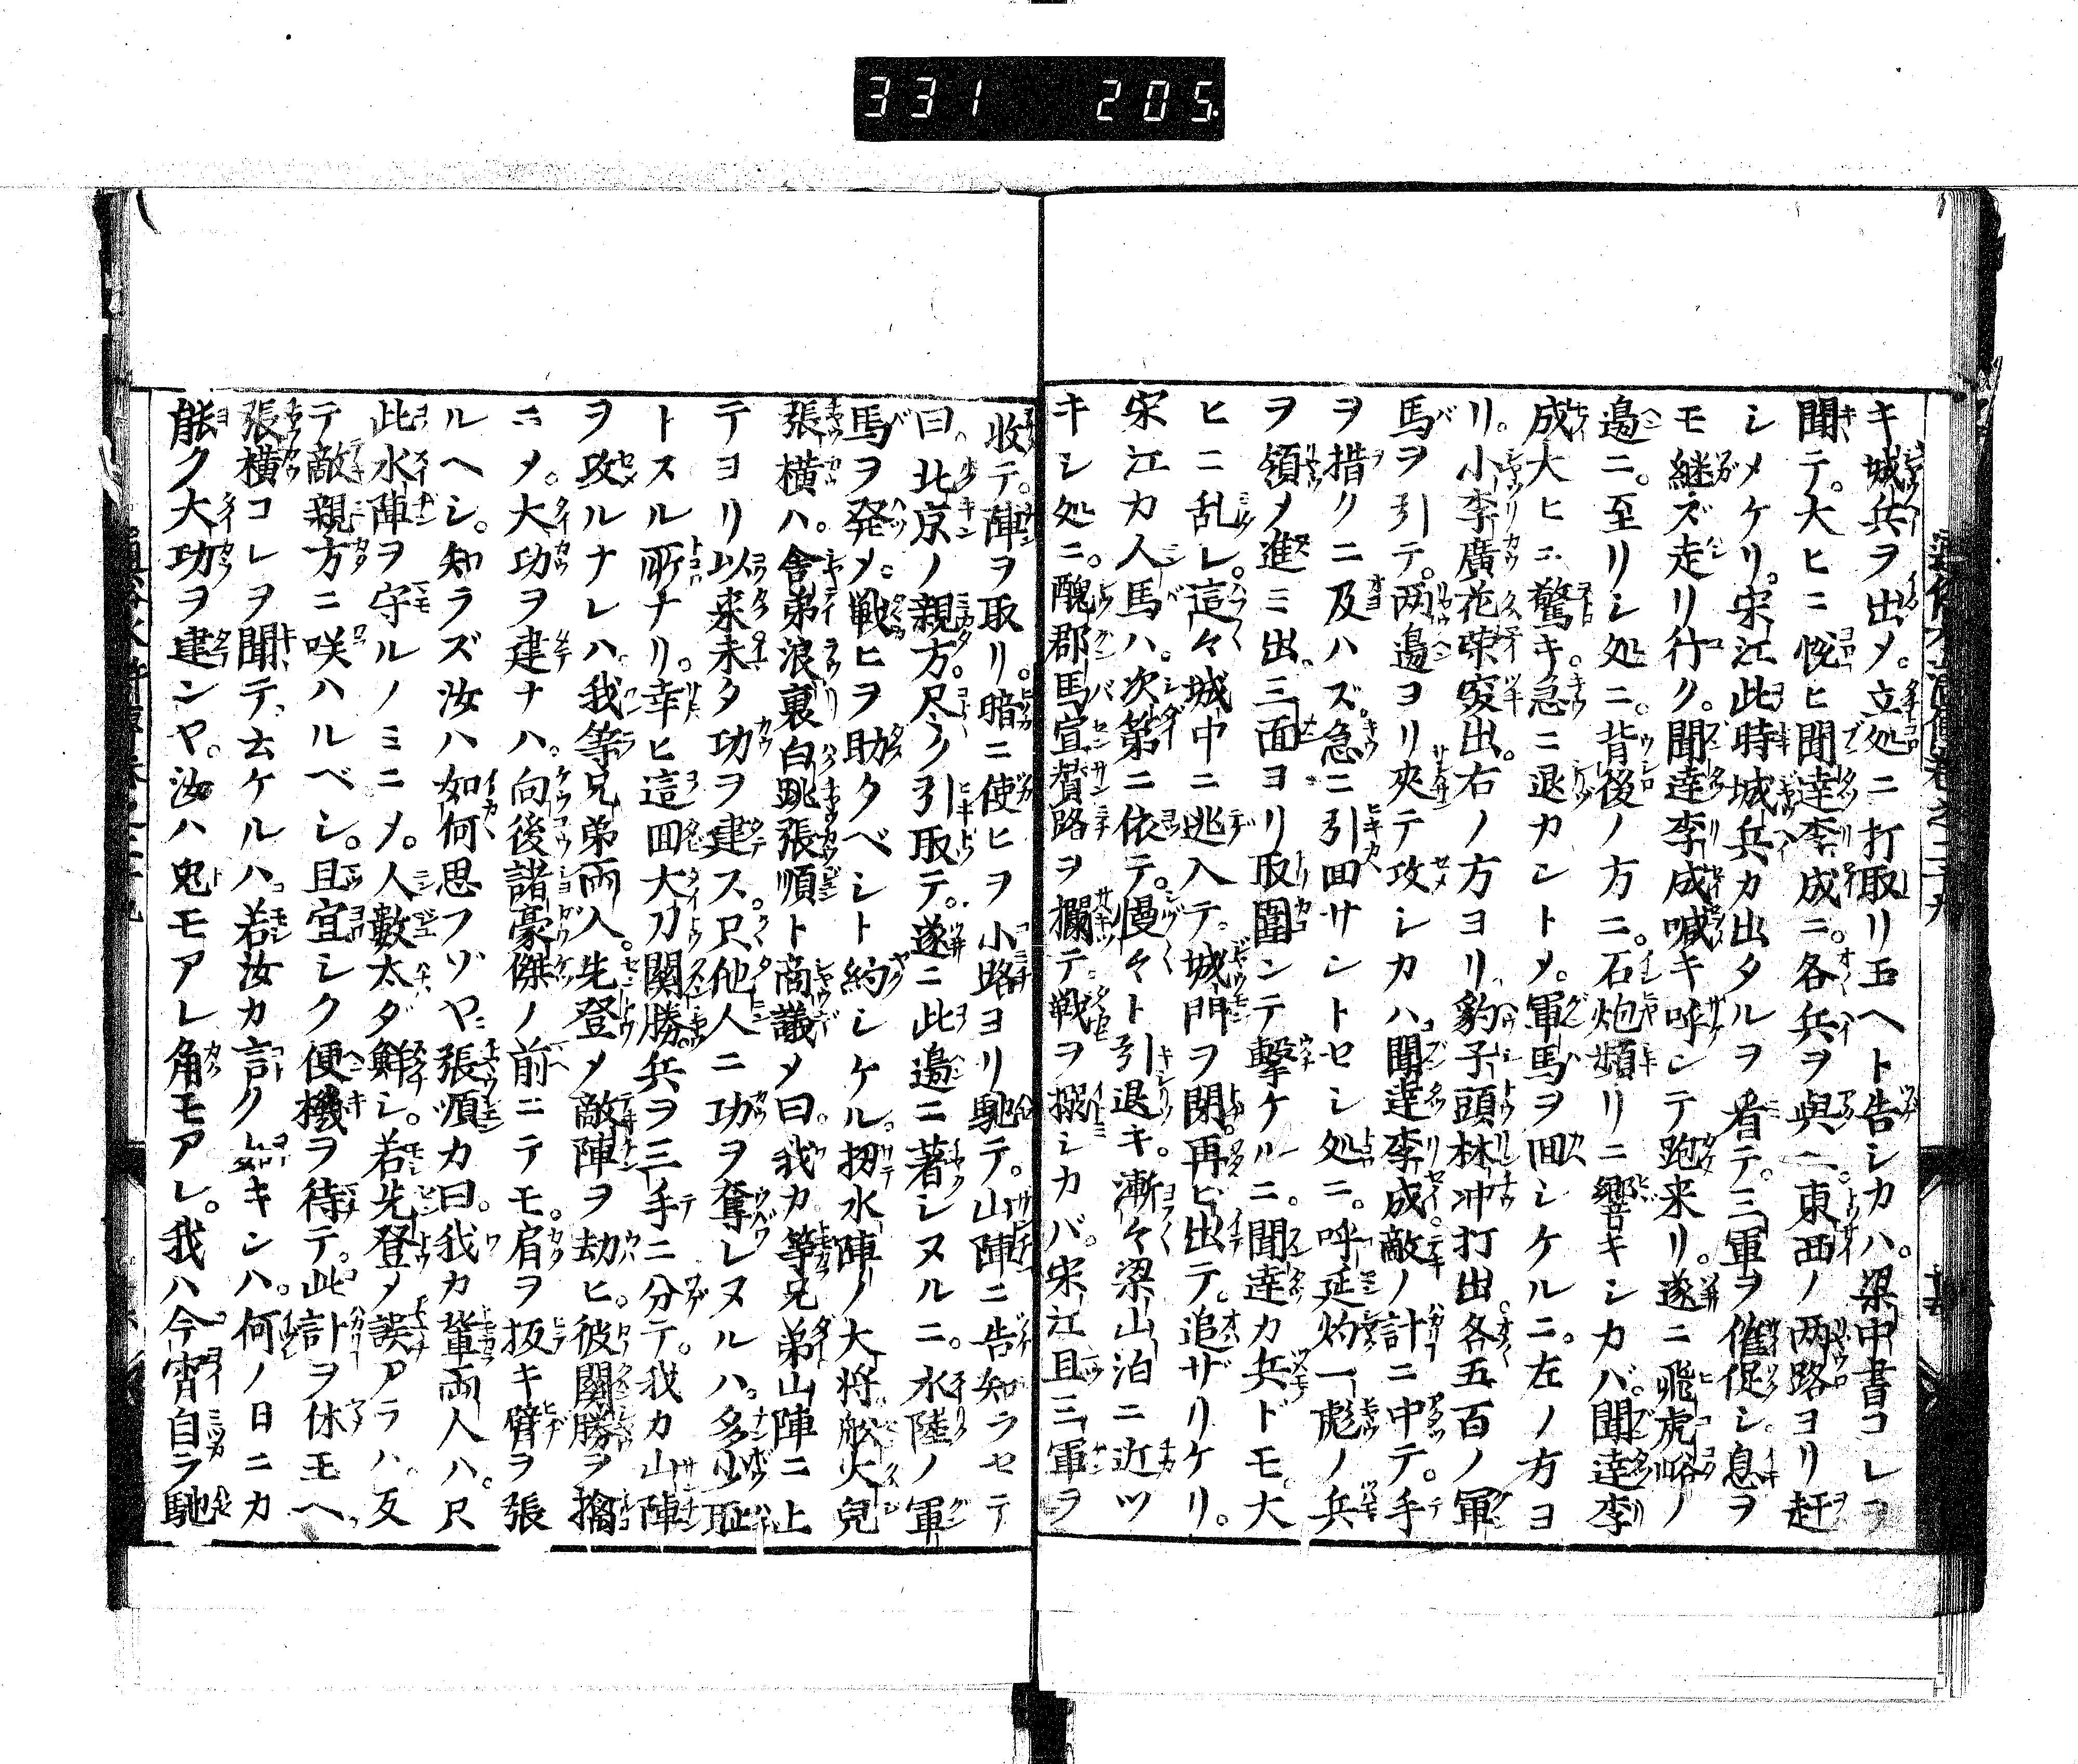 331 205
キ城兵ヲ出メ。立処ニ打取リ玉ヘト告シカハ。梁中書コレヲ
聞テ。大ヒニ悦ヒ聞達李成ニ。各兵ヲ與ヘ。東西ノ両路ヨリ赶
シメケリ。宋江此時城兵カ出タルヲ看テ。三軍ヲ催促シ。息ヲ
モ継ズ走リ行ク。聞達李成喊キ呼ンテ跑来リ。遂ニ飛虎峪ノ
邉ニ。至リシ処ニ。背後ノ方ニ。石炮頻リニ響キシカバ。聞達李
成大ヒニ驚キ。急ニ退カントメ。軍馬ヲ回シケルニ。左ノ方ヨ
リ。小李廣花榮突出。右ノ方ヨリ。豹子頭林冲打出。各五百ノ軍
馬ヲ引テ。両邉ヨリ夾テ攻シカハ。聞達李成敵ノ計ニ中テ。手
ヲ措クニ及ハズ。急ニ引回サントセシ処ニ。呼延灼一彪ノ兵
ヲ領メ進ミ出。三面ヨリ取圍ンテ撃ケルニ。聞達カ兵ドモ。大
ヒニ乱レ。這々城中ニ迯入テ。城門ヲ閉。再ヒ出テ。追ザリケリ。
宋江カ人馬ハ。次第ニ依テ。慢々ト引退キ。漸々梁山泊ニ近ツ
キシ処ニ。醜郡馬宣賛路ヲ攔テ。戦ヲ搦シカバ。宋江且三軍ヲ
收テ。陣ヲ取リ。暗ニ使ヒヲ小路ヨリ馳テ。山陣ニ告知ラセテ
曰。北京ノ親方。尽ク引取テ。遂ニ此邉ニ著シヌルニ。水陸ノ軍
馬ヲ発メ。戦ヒヲ助クベシト約シケル。扨水陣ノ大将舩火兒
張横ハ。舎弟浪裏白跳張順ト商議メ曰。我カ等兄弟山陣ニ上
テヨリ以来未タ功ヲ建ス。只他人ニ功ヲ奪レヌルハ。多少耻
トスル所ナリ。幸ヒ這回大刀関勝。兵ヲ三手ニ分テ。我カ山陣
ヲ攻ルナレハ。我等兄弟両人。先登メ敵陣ヲ劫ヒ。彼関勝ヲ擒
ニメ。大功ヲ建ナハ。向後諸豪傑ノ前ニテモ。肩ヲ扳キ臂ヲ張
ルヘシ。知ラズ汝ハ如何思フゾヤ。張順カ曰。我カ輩両人ハ。只
此水陣ヲ守ルノミニメ。人數太ダ鮮シ。若先登メ誤アラハ。反
テ敵親方ニ咲ハルベシ。且宜シク便機ヲ待テ。此計ヲ休玉ヘ。
張横コレヲ聞テ。云ケルハ。若汝カ言ク如キンハ。何ノ日ニカ
能ク大功ヲ建ンヤ。汝ハ兎モアレ角モアレ。我ハ今宵自ラ馳